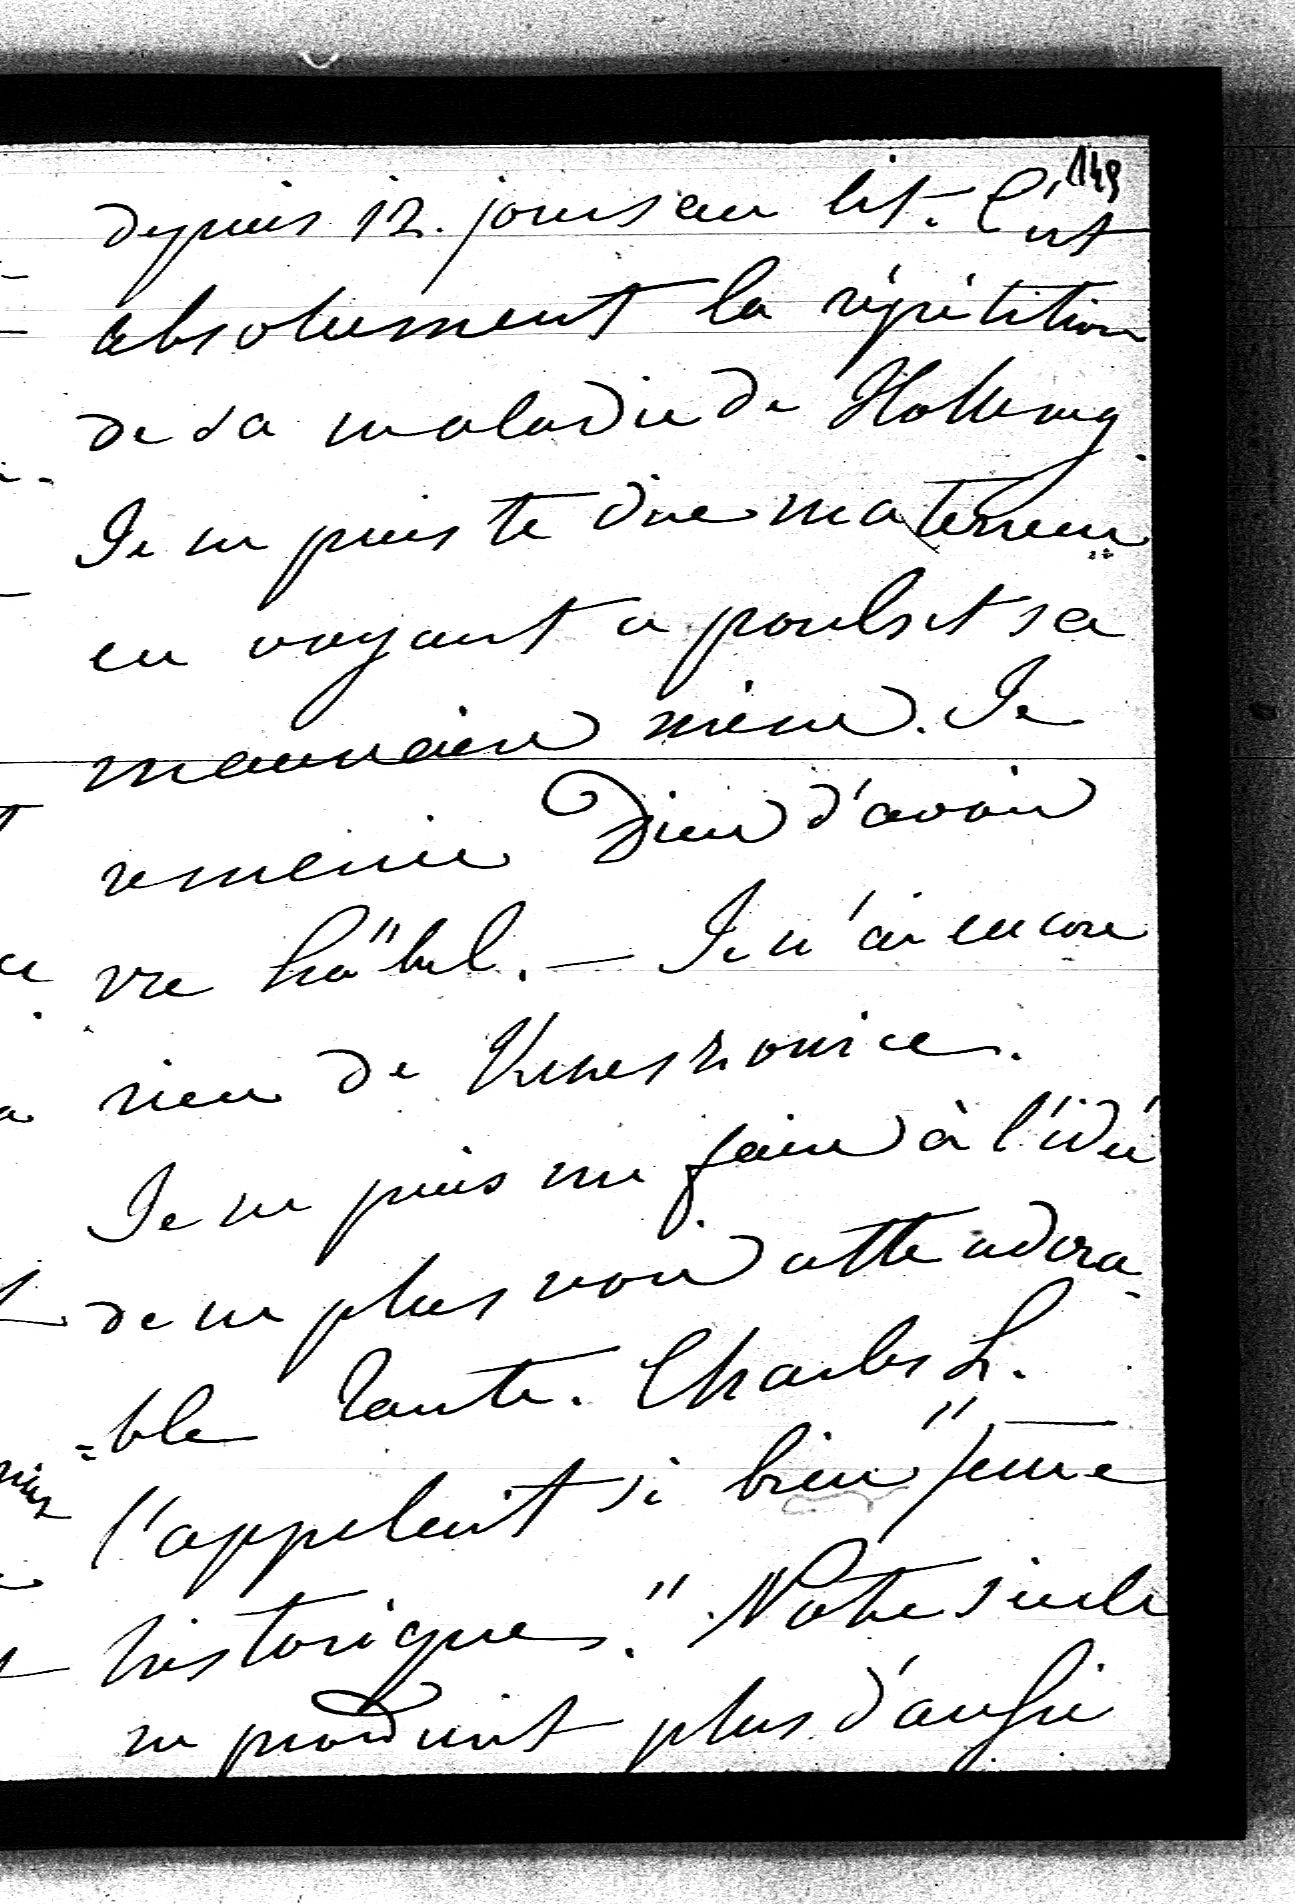 149
depuis 12. jours au lit. C'est
absolument la répétition
de sa maladie de
Je ne puis te dire ma terreur
en voyant ce pouls et sa
mauvaise mine. Je
remercie Dieu d'avoir
vre. — Je n'ai encore
rien de
Je ne puis me faire à l'idée
de ne plus voir cette adora-
=ble Tante. Charles L.
l'appelait si bien "femme
historique." Notre siècle
ne produit plus d'aussi